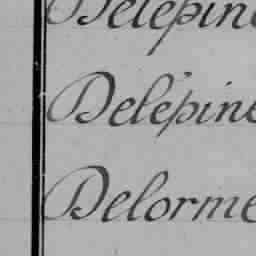 Delépine
Delépine
Delorme